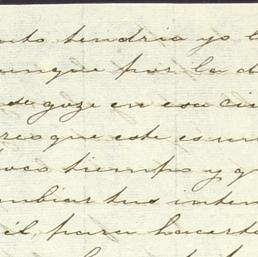 nto tendria yo l
unque por la d
se goze en esa ciu
reo que este es un
poco tiempo y q
mbiar tus inten
él, para hacerte